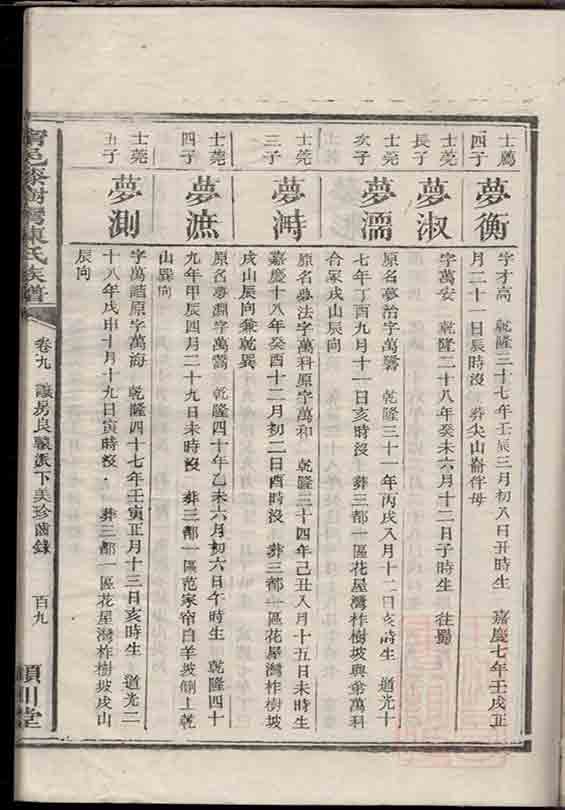 士薦
四子
夢衡
字才高 乾隆三十七年壬辰三月初八日丑時生 嘉慶七年壬戌正
月二十一日辰時沒 葬尖山崙伴母
士蕘
長子
夢淑
字萬安 乾隆二十八年癸未六月十二日子時生 往蜀
士蕘
次子
夢濡
原名夢治字萬 乾隆三十一年丙戌八月十二日亥時生 道光十
七年丁酉九月十一日亥時沒 葬三都一區花屋灣柞樹坡與弟萬科
合冢戌山辰向
士蕘
三子
夢溡
原名夢法字萬科原字萬和 乾隆三十四年己丑八月十五日未時生
嘉慶十八年癸酉十二月初二日酉時沒 葬三都一區花屋灣柞樹坡
戌山辰向兼乾巽
士蕘
四子
夢㵂
原名夢淵字萬 乾隆四十年乙未六月初六日午時生 乾隆四十
九年甲辰四月二十九日未時沒 葬三都一區范家帘白羊坡側上乾
山巽向
士蕘
五子
夢測
字萬 原字萬海 乾隆四十七年壬寅正月十三日亥時生 道光二
十八年戊申十月十九日寅時沒 葬三都一區花屋灣柞樹坡戌山
辰向
陳氏族譜
卷九 讓房良驥派下美珍齒錄 百九
潁川堂